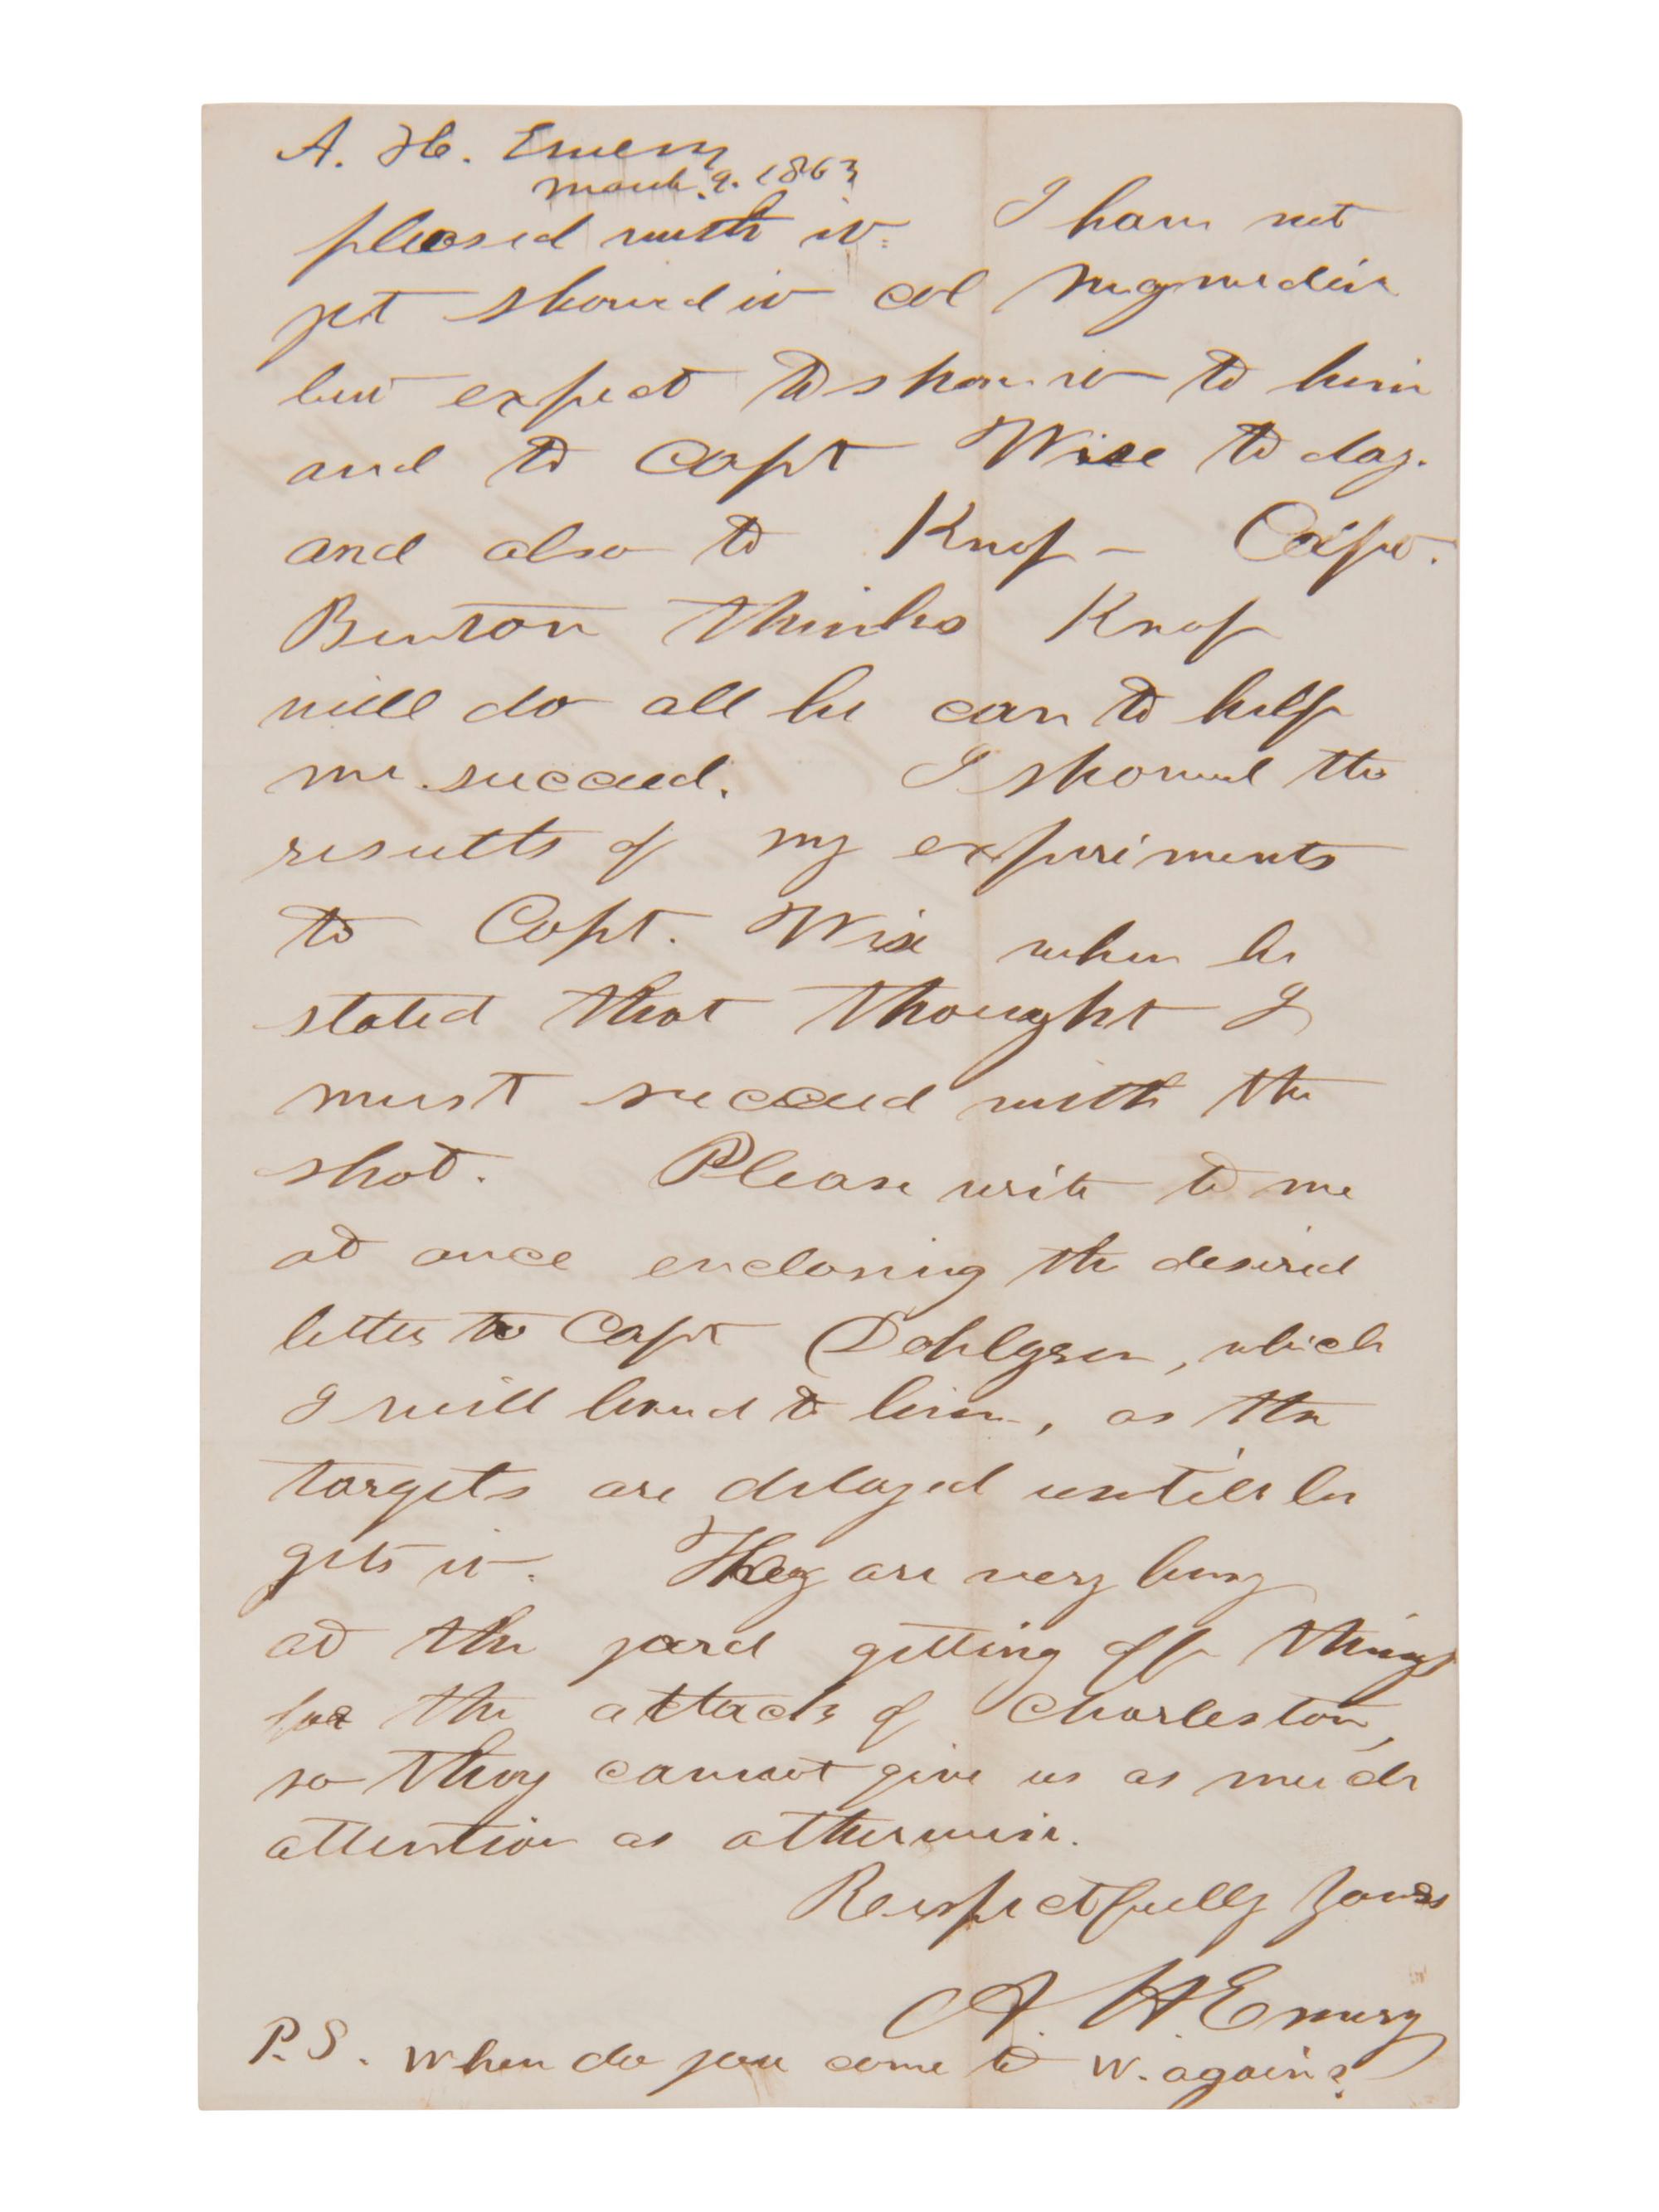 A. H. Emery
March 9. 1863
pleased with it. I have not
yet showed it Col
but expect to show it to him
and to Capt Wise to day.
and also to Knap – Capt.
Benton thinks Knap
will do all he can to help
me succeed. I showed the
results of my experiments
to Capt. Wise when he
stated that thought I
must succeed with the
shot. Please write to me
at once enclosing the desired
letter to Capt Dahlgren, which
I will hand to him, as the
targets are delayed until he
gets it. They are very busy
at the yard getting off things
for the attack of Charleston,
so they cannot give us as much
attention as otherwise.
Respectfully Yours
A. H. Emery
P.S. When do you come to W. again?